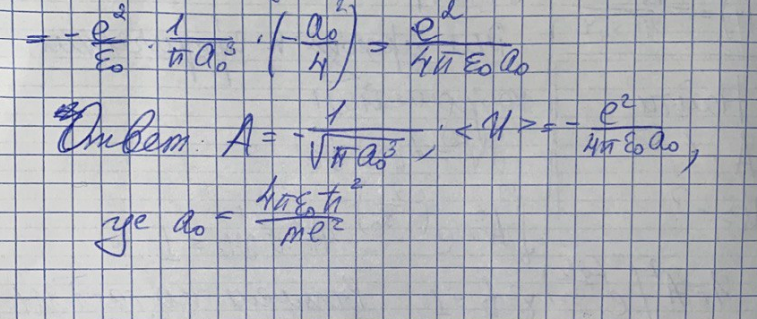 = - e²/ε₀ · 1/πa₀³ · (- a₀²/4) = e²/4πε₀a₀
Ответ: A = - 1/√πa₀³ ; <U> = - e²/4πε₀a₀ ,
где a₀ = 4πε₀ħ²/me²